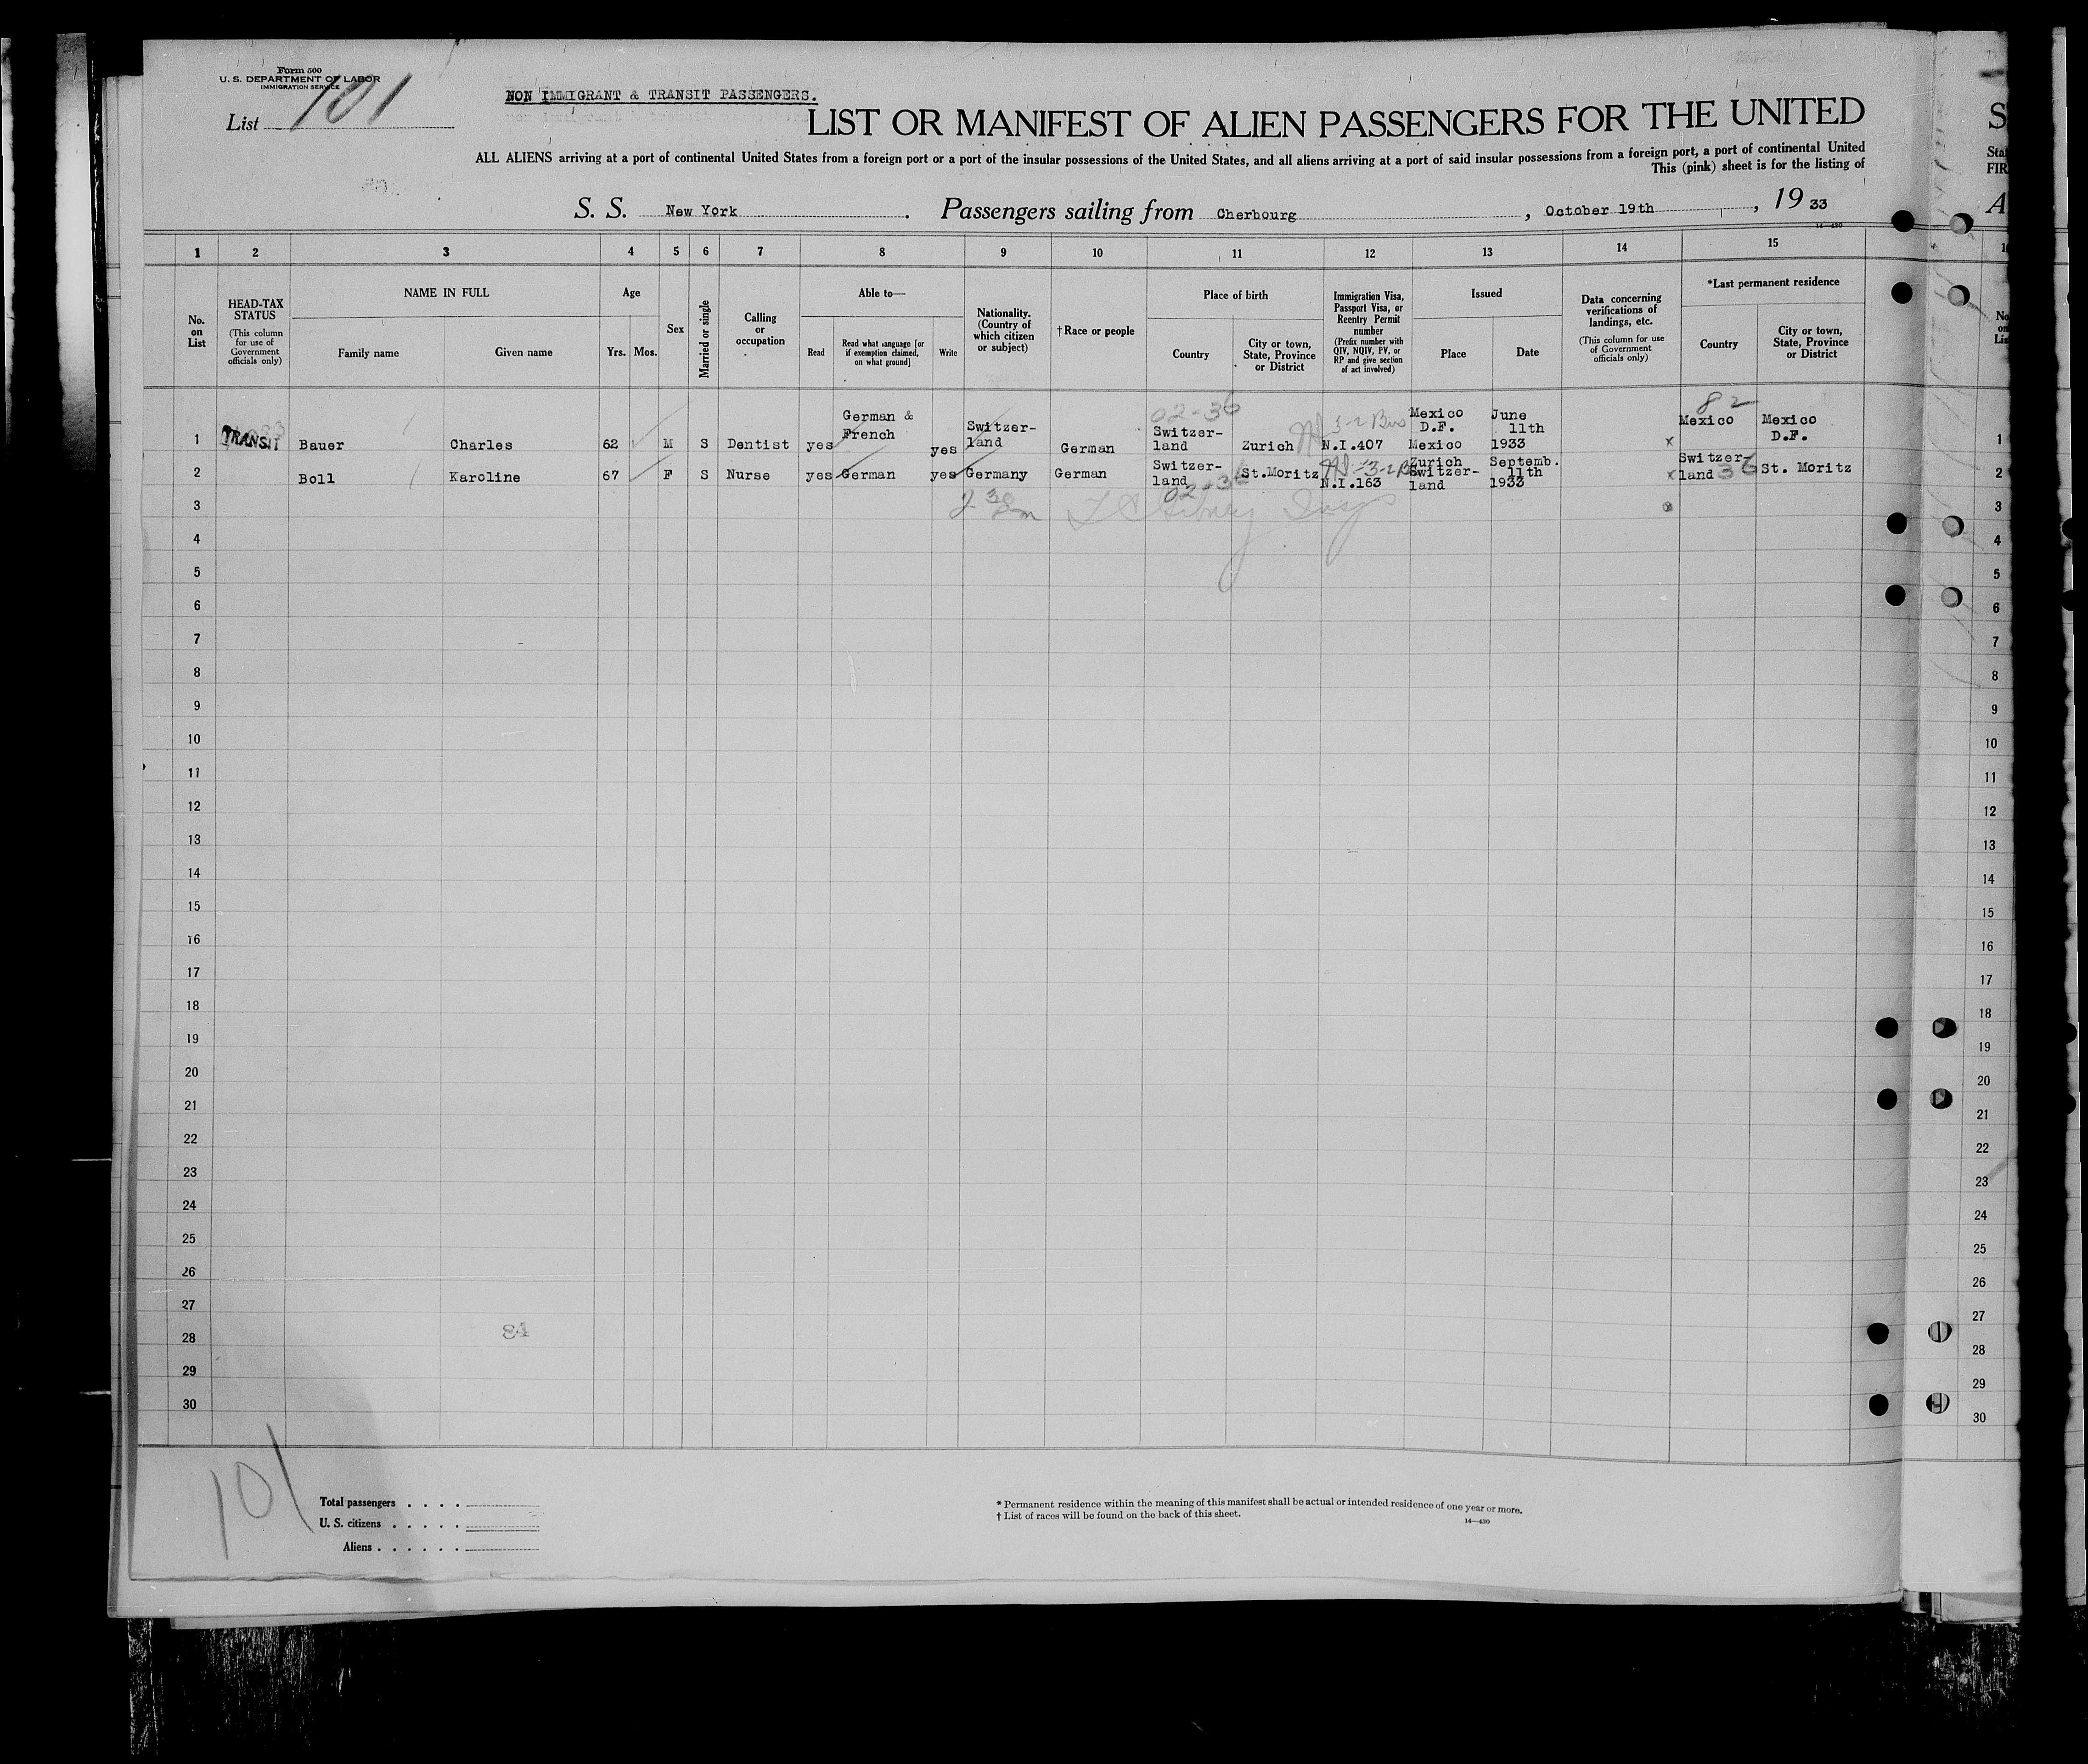 Form 500
U. S. DEPARTMENT OF LABOR
IMMIGRATION SERVICE
List 101
NON IMMIGRANT & TRANSIT PASSENGERS.
LIST OR MANIFEST OF ALIEN PASSENGERS FOR THE UNITED
ALL ALIENS arriving at a port of continental United States from a foreign port or a port of the insular possessions of the United States, and all aliens arriving at a port of said insular possessions from a foreign port, a port of continental United
This (pink) sheet is for the listing of
S. S. New York. Passengers sailing from Cherbourg, October 19th, 19 33
14—430
S
Sta
FIR
A
1 2 3 4 5 6 7 8 9 10 11 12 13 14 15
No. on List
HEAD-TAX STATUS
(This column for use of Government officials only)
NAME IN FULL
Family name
Given name
Age
Yrs. Mos.
Sex
Married or single
Calling or occupation
Able to—
Read
Read what language [or if exemption claimed, on what ground]
Write
Nationality. (Country of which citizen or subject)
† Race or people
Place of birth
Country
City or town, State, Province or District
Immigration Visa, Passport Visa, or Reentry Permit number
(Prefix number with QIV, NQIV, PV, or RP and give section of act involved)
Issued
Place
Date
Data concerning verifications of landings, etc.
(This column for use of Government officials only)
*Last permanent residence
Country
City or town, State, Province or District
1 TRANSIT Bauer Charles 62 M S Dentist yes German & French yes Switzer-land German 02-36 Switzer-land Zurich N.I.407 Mexico D.F. Mexico June 11th 1933 x 82 Mexico Mexico D.F. 1
2 Boll Karoline 67 F S Nurse yes German yes Germany German Switzer-land St.Moritz N.I.163 Zurich Switzer-land Septemb. 11th 1933 x Switzer-land 36 St. Moritz 2
3 3
4 4
5 5
6 6
7 7
8 8
9 9
10 10
11 11
12 12
13 13
14 14
15 15
16 16
17 17
18 18
19 19
20 20
21 21
22 22
23 23
24 24
25 25
26 26
27 27
28 84 28
29 29
30 30
101
Total passengers . . . .
U. S. citizens . . . . .
Aliens . . . . . .
* Permanent residence within the meaning of this manifest shall be actual or intended residence of one year or more.
† List of races will be found on the back of this sheet.
14—430